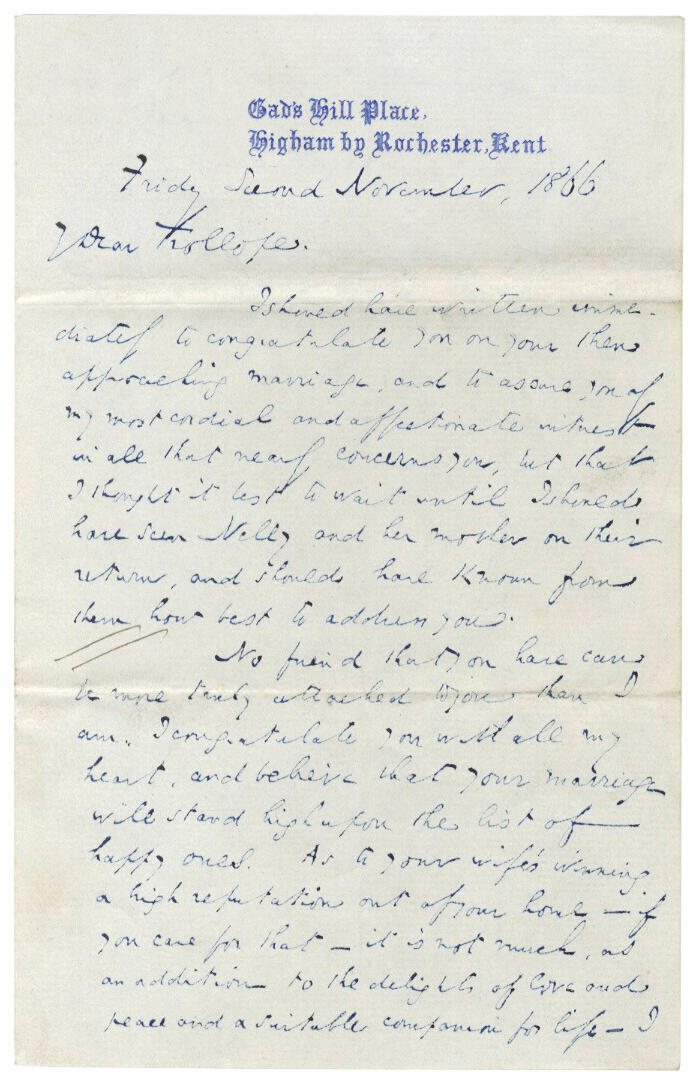 Gad's Hill Place,
Higham by Rochester, Kent.
Friday Second November, 1866
My Dear Trollope.
I should have written imme-
diately to congratulate you on your then
approaching marriage, and to assure you of
my most cordial and affectionate interest
in all that nearly concerns you, but that
I thought it best to wait until I should
have seen Nelly and her mother on their
return, and should have known from
them how best to address you.
No friend that you have can
be more truly attached to you than I
am. I congratulate you with all my
heart, and believe that your marriage
will stand high upon the list of
happy ones. As to your wife's winning
a high reputation out of your home — if
you care for that — it is not much, as
an addition to the delights of love and
peace and a suitable companion for life — I